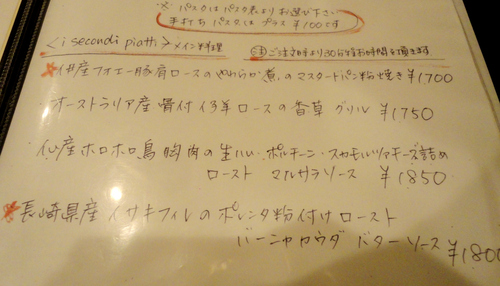 ※ パスタはパスタ表よりお選び下さい
手打ちパスタはプラス¥100です
<i secondi piatti> メイン料理 注 ご注文時より30分程お時間を頂きます
※伊産フォエー豚肩ロースのやわらか煮のマスタードパン粉焼き ¥1700
・オーストラリア産 骨付仔羊ロースの香草グリル ¥1750
・仏産ホロホロ鳥胸肉の生ハム・ポルチーニ・スカモルツァチーズ詰め
ロースト マルサラソース ¥1850
※長崎県産イサキフィレのポレンタ粉付けロースト
バーニャカウダ バターソース ¥1800